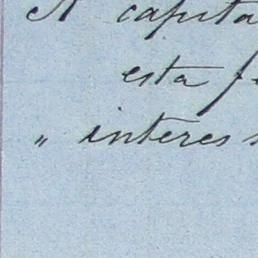 A capita
esta fe
" interes